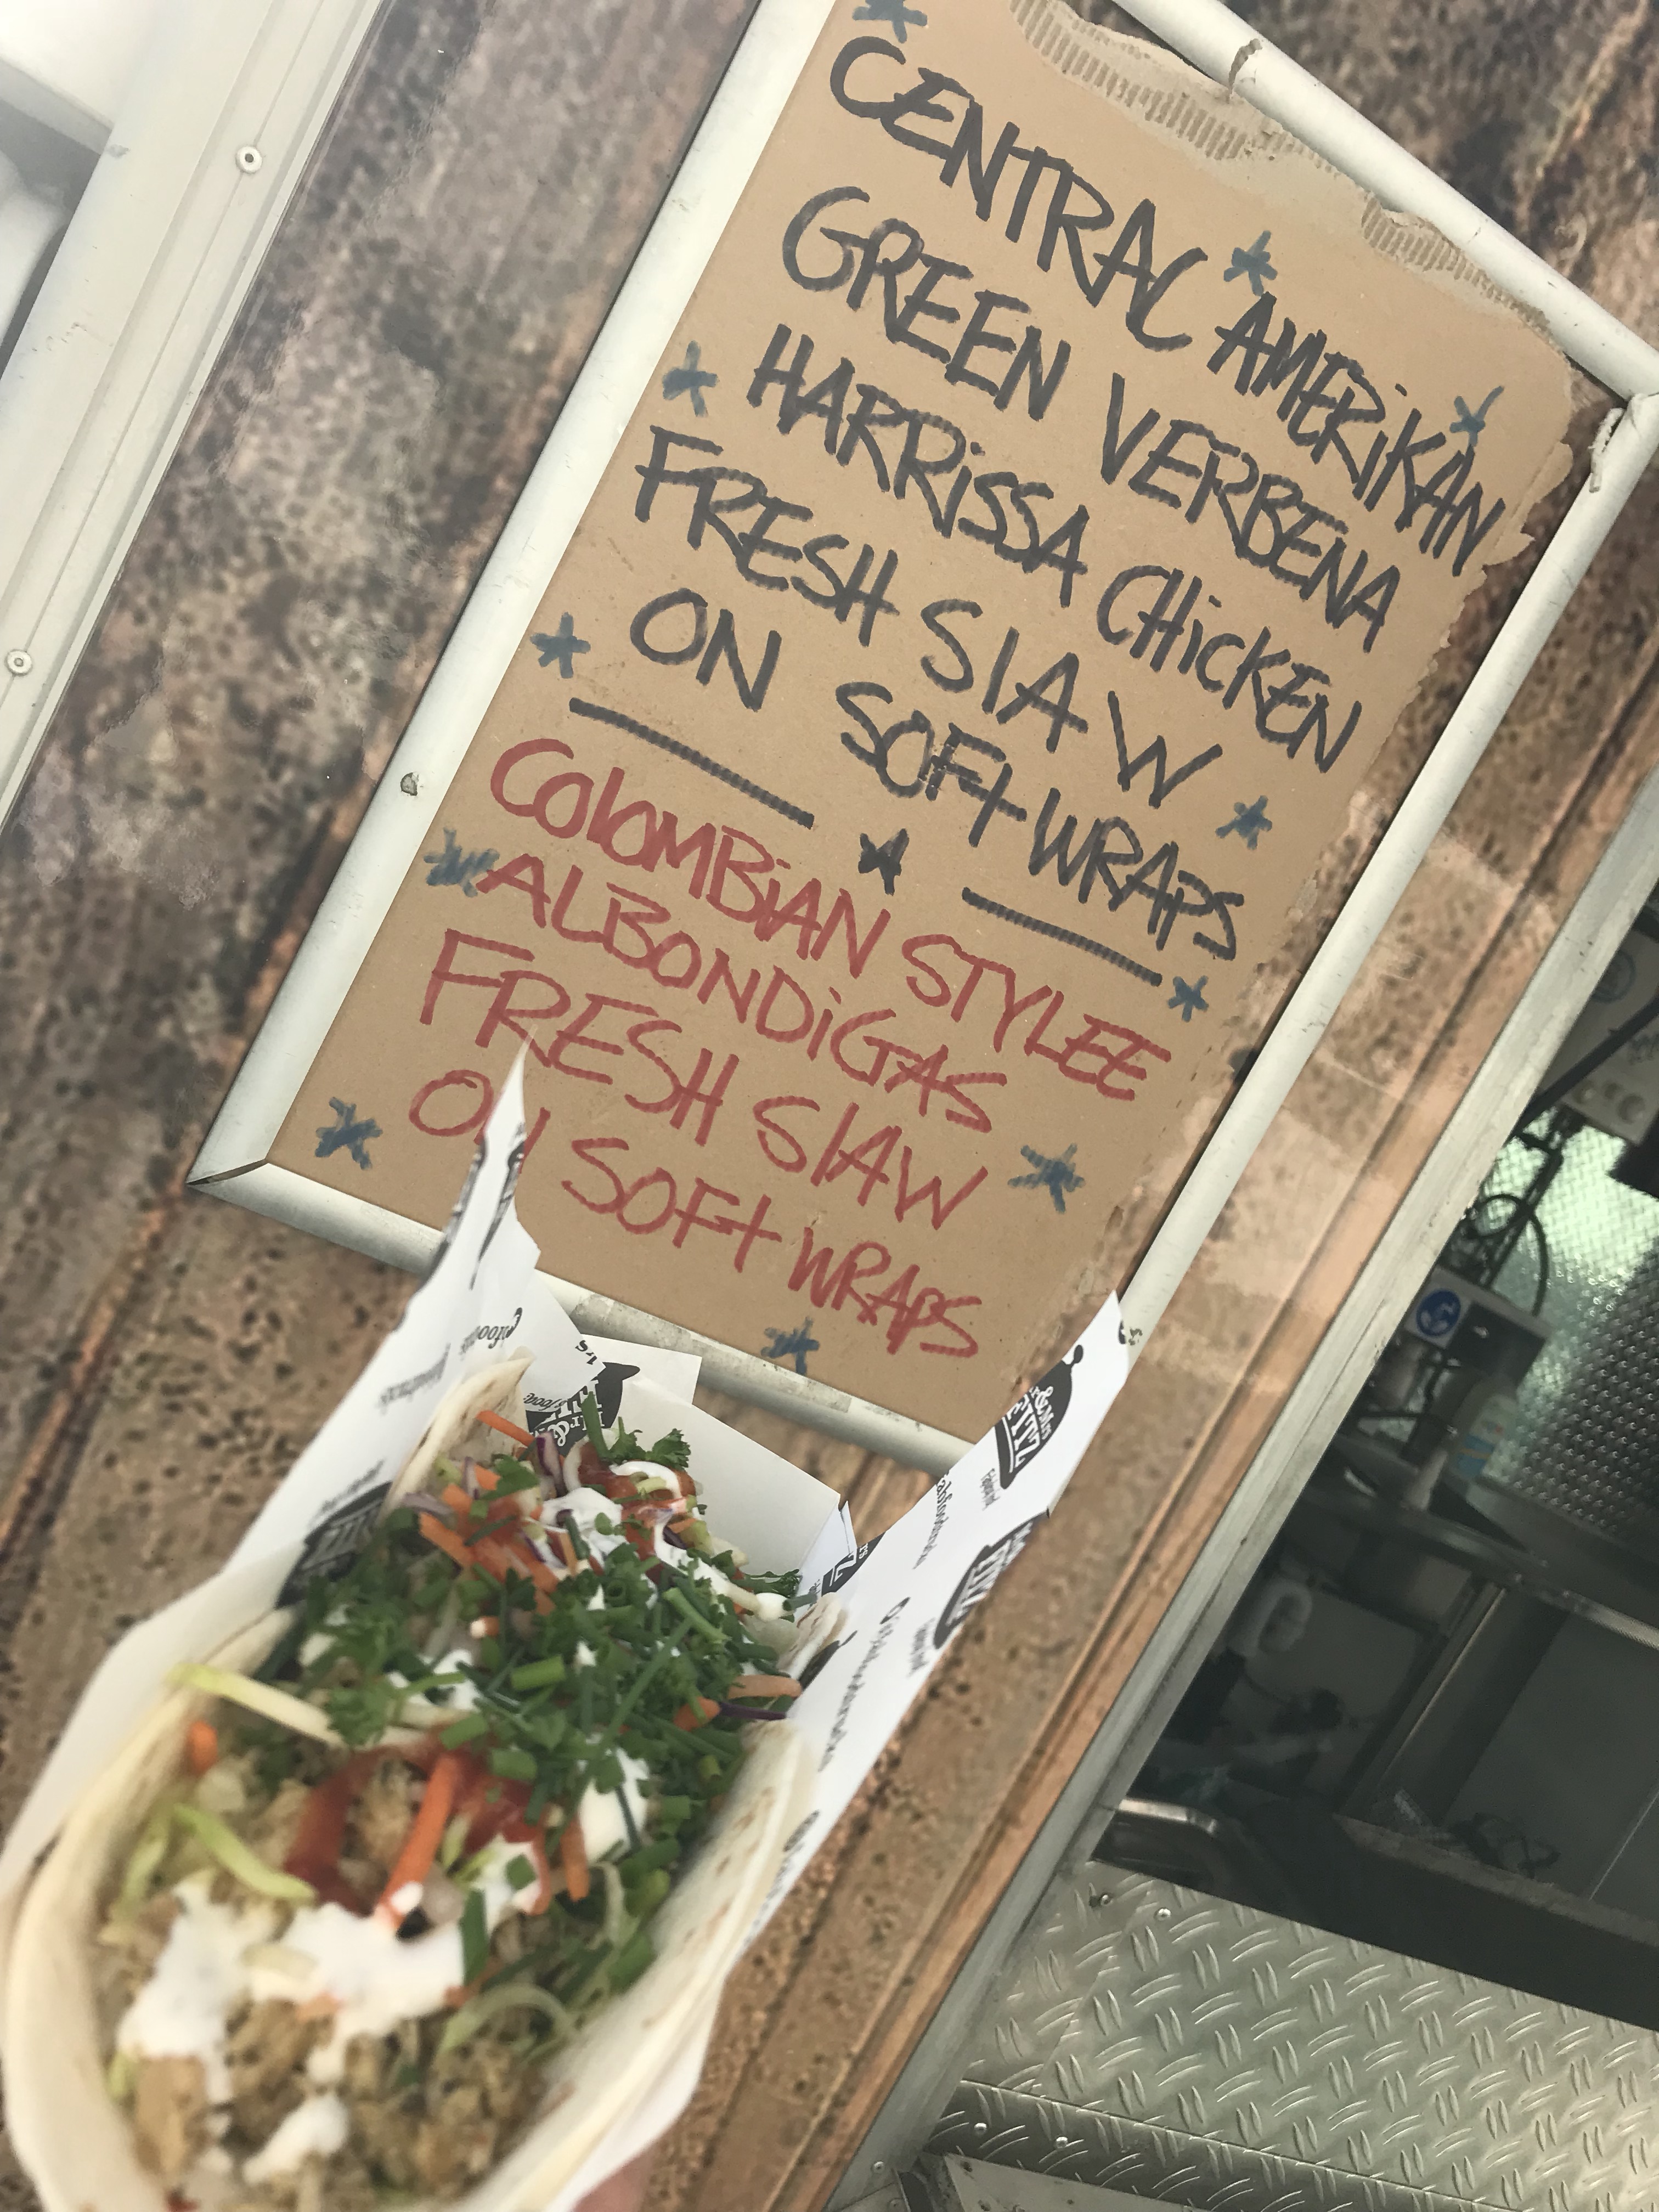 CENTRAL AMERiKAN
GREEN VERBENA
HARRiSSA CHiCKEN
FRESH SlAW
ON SOFt WRAPS
COlOMBiAN STYLEE
ALBONDiGAS
FRESH SlAW
ON SOFt WRAPS